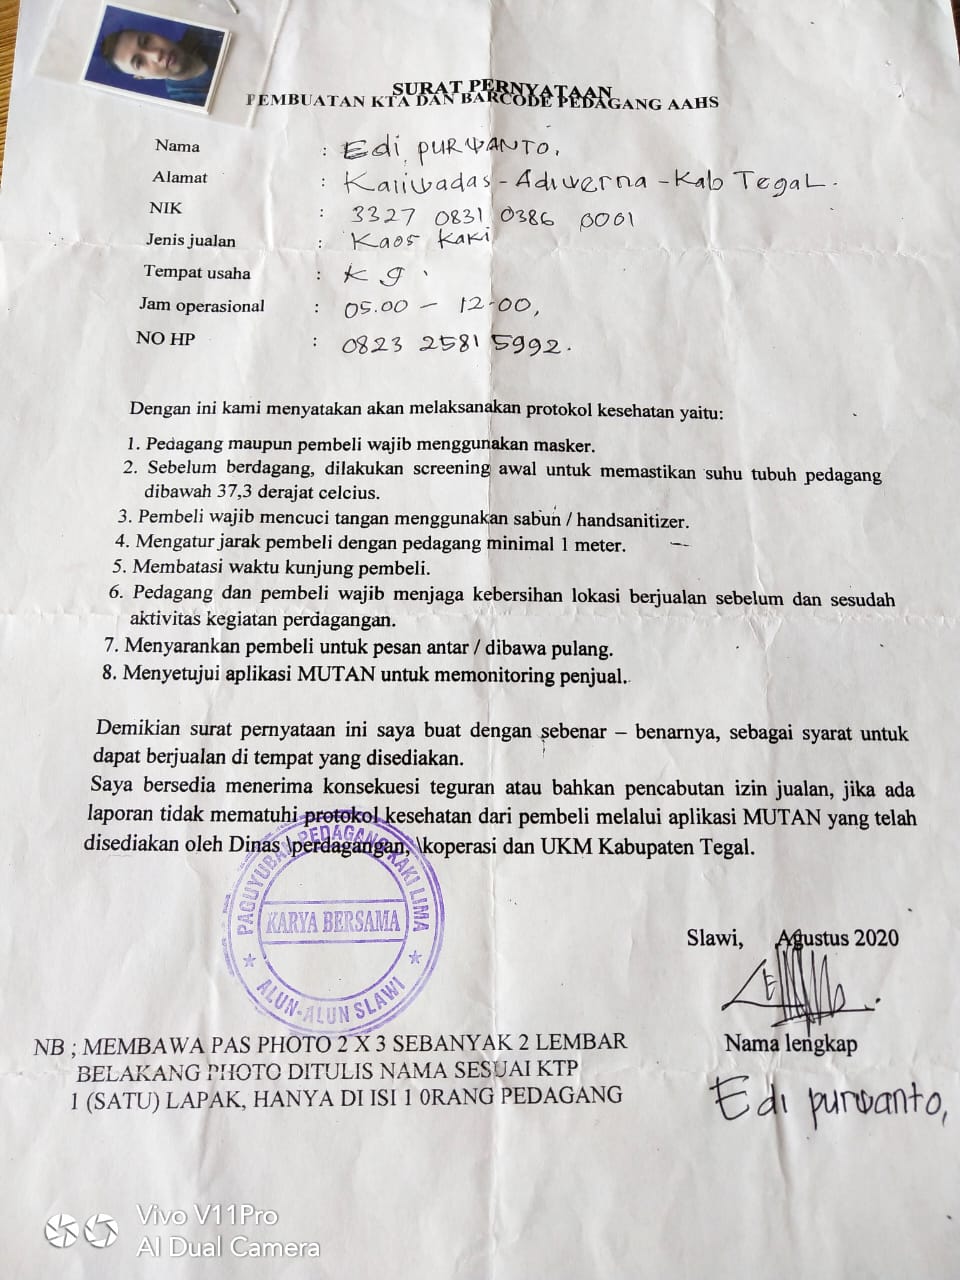 SURAT PERNYATAAN
PEMBUATAN KTA DAN BARCODE PEDAGANG AAHS
Nama : Edi PURWANTO,
Alamat : Kaliwadas - Adiwerna - Kab Tegal.
NIK : 3327 0831 0386 0001
Jenis jualan : Kaos Kaki
Tempat usaha : K g
Jam operasional : 05.00 - 12.00,
NO HP : 0823 2581 5992.
Dengan ini kami menyatakan akan melaksanakan protokol kesehatan yaitu:
1. Pedagang maupun pembeli wajib menggunakan masker.
2. Sebelum berdagang, dilakukan screening awal untuk memastikan suhu tubuh pedagang
dibawah 37,3 derajat celcius.
3. Pembeli wajib mencuci tangan menggunakan sabun / handsanitizer.
4. Mengatur jarak pembeli dengan pedagang minimal 1 meter.
5. Membatasi waktu kunjung pembeli.
6. Pedagang dan pembeli wajib menjaga kebersihan lokasi berjualan sebelum dan sesudah
aktivitas kegiatan perdagangan.
7. Menyarankan pembeli untuk pesan antar / dibawa pulang.
8. Menyetujui aplikasi MUTAN untuk memonitoring penjual.
Demikian surat pernyataan ini saya buat dengan sebenar – benarnya, sebagai syarat untuk
dapat berjualan di tempat yang disediakan.
Saya bersedia menerima konsekuesi teguran atau bahkan pencabutan izin jualan, jika ada
laporan tidak mematuhi protokol kesehatan dari pembeli melalui aplikasi MUTAN yang telah
disediakan oleh Dinas \perdagangan, \koperasi dan UKM Kabupaten Tegal.
PAGUYUBAN PEDAGANG KAKI LIMA
KARYA BERSAMA
ALUN-ALUN SLAWI
Slawi, Agustus 2020
Nama lengkap
Edi purwanto,
NB ; MEMBAWA PAS PHOTO 2 X 3 SEBANYAK 2 LEMBAR
BELAKANG PHOTO DITULIS NAMA SESUAI KTP
1 (SATU) LAPAK, HANYA DI ISI 1 0RANG PEDAGANG
Vivo V11Pro
AI Dual Camera